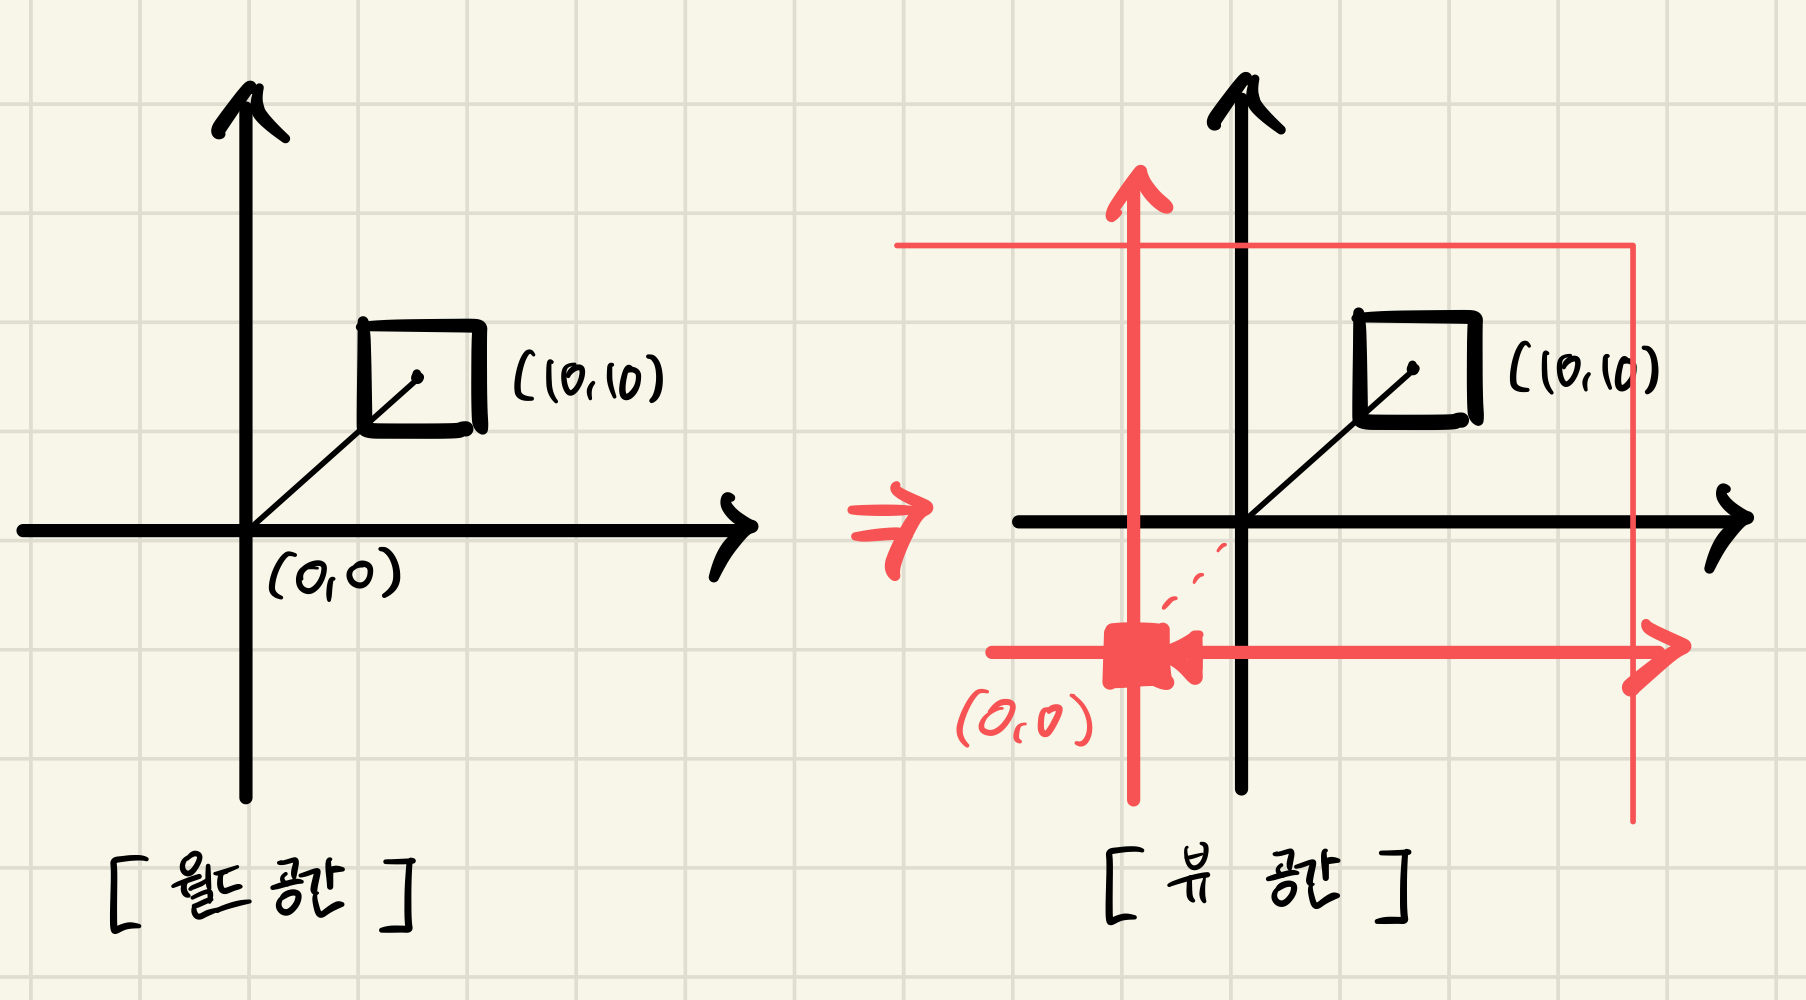 (10,10)
(0,0)
[ 월드 공간 ]
(10,10)
(0,0)
[ 뷰 공간 ]